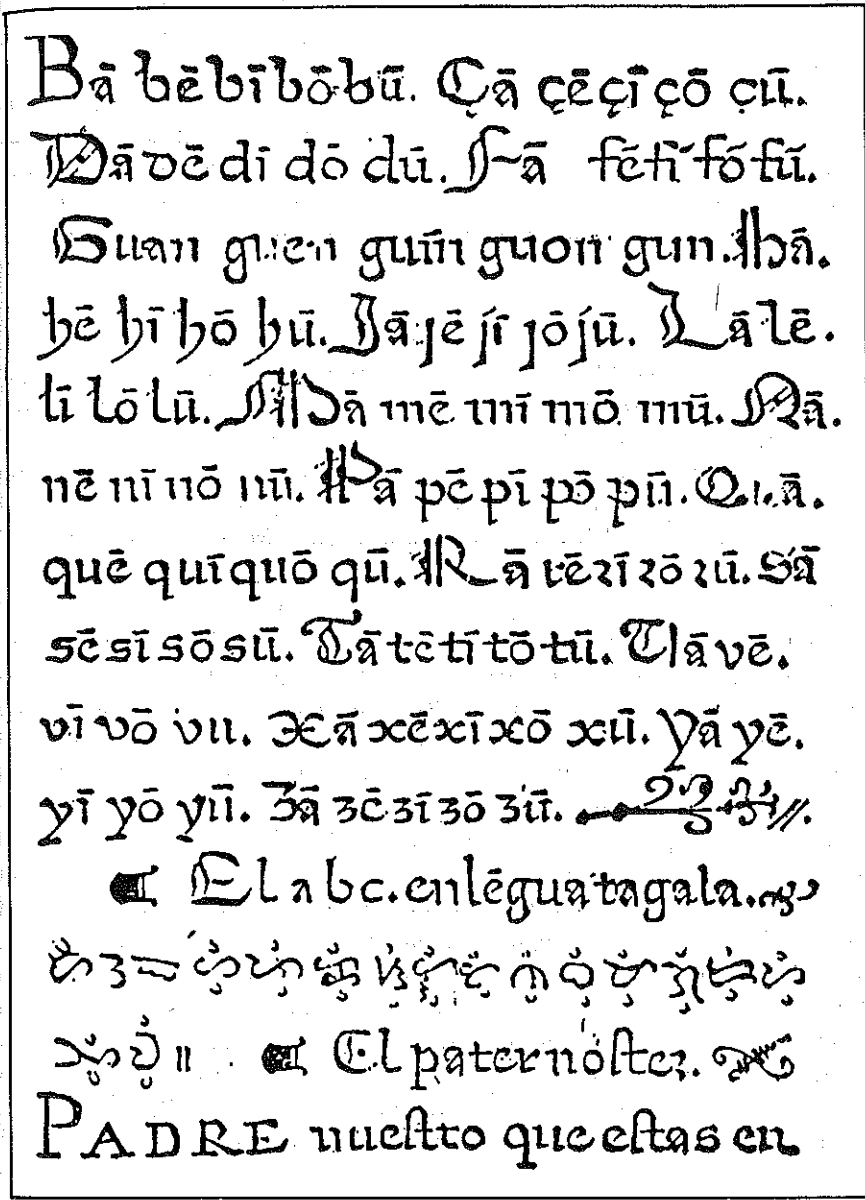 Bā bē bī bō bū. Çā çē çī çō çū.
Dā dē dī dō dū. Fā fē fī fō fū.
Guan guen guin guon gun. Hā.
hē hī hō hū. Jā jē jī jō jū. Lā lē.
lī lō lū. Mā mē mī mō mū. Nā.
nē nī nō nū. Pā pē pī pō pū. Quā.
quē quī quō qū. Rā rē rī rō rū. Sā
sē sī sō sū. Tā tē tī tō tū. Uā vē.
vī vō vu. Xā xē xī xō xū. Yā yē.
yī yō yū. Zā zē zī zō zū.
El abc. en lēgua tagala.
ᜀ ᜂ ᜁ ᜑᜒᜓ ᜉᜒᜓ ᜃᜒᜓ ᜐᜒᜓ ᜎᜒᜓ ᜆᜒᜓ ᜈᜒᜓ ᜊᜒᜓ ᜋᜒᜓ ᜄᜒᜓ ᜇᜒᜓ ᜌᜒᜓ
ᜅᜒᜓ ᜏᜒᜓ ॥ El pater noſter.
PADRE nueſtro que eſtas en